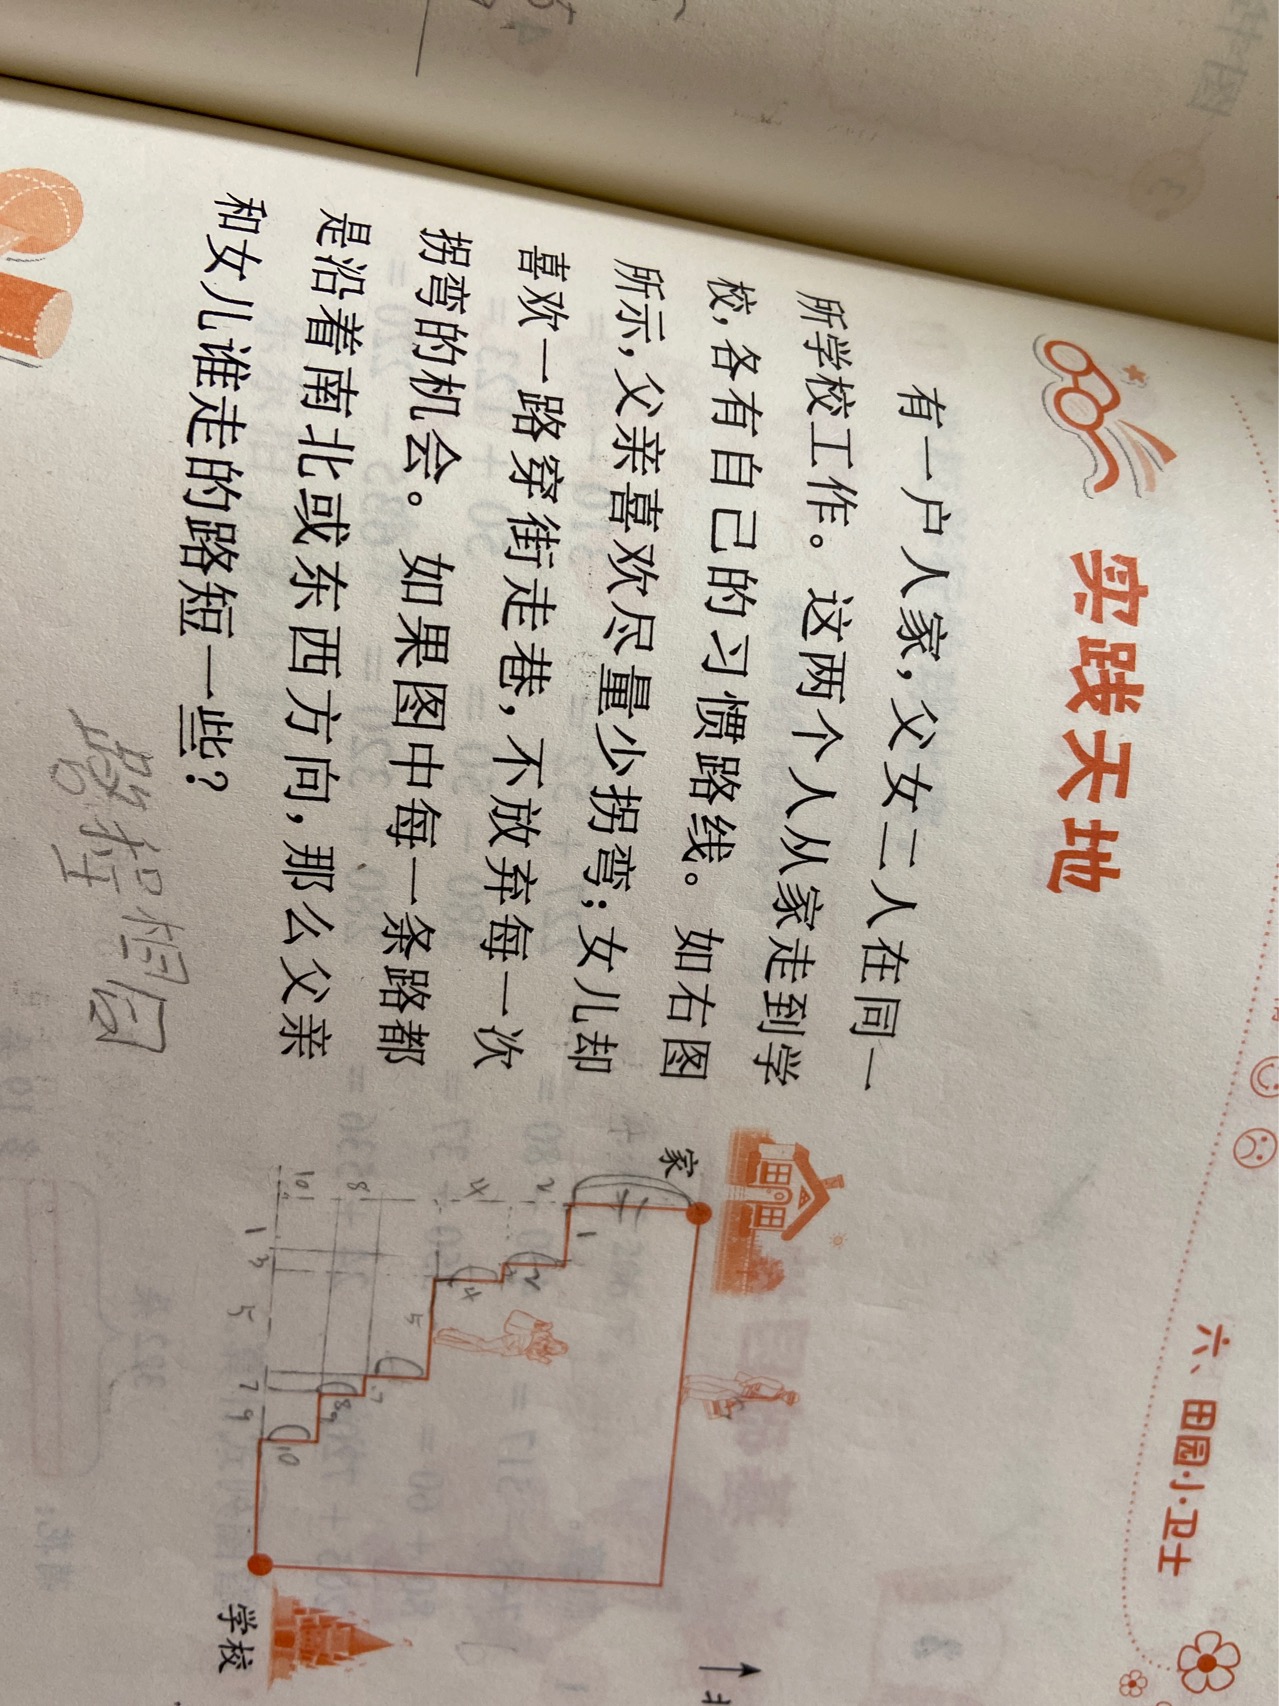 六、田园小卫士
实践天地
有一户人家,父女二人在同一
所学校工作。这两个人从家走到学
校,各有自己的习惯路线。如右图
所示,父亲喜欢尽量少拐弯;女儿却
喜欢一路穿街走巷,不放弃每一次
拐弯的机会。如果图中每一条路都
是沿着南北或东西方向,那么父亲
和女儿谁走的路短一些?
家
1
2
4
5
7
8
9
10
2
4
8
10
1
3
5
7
9
学校
路程相同